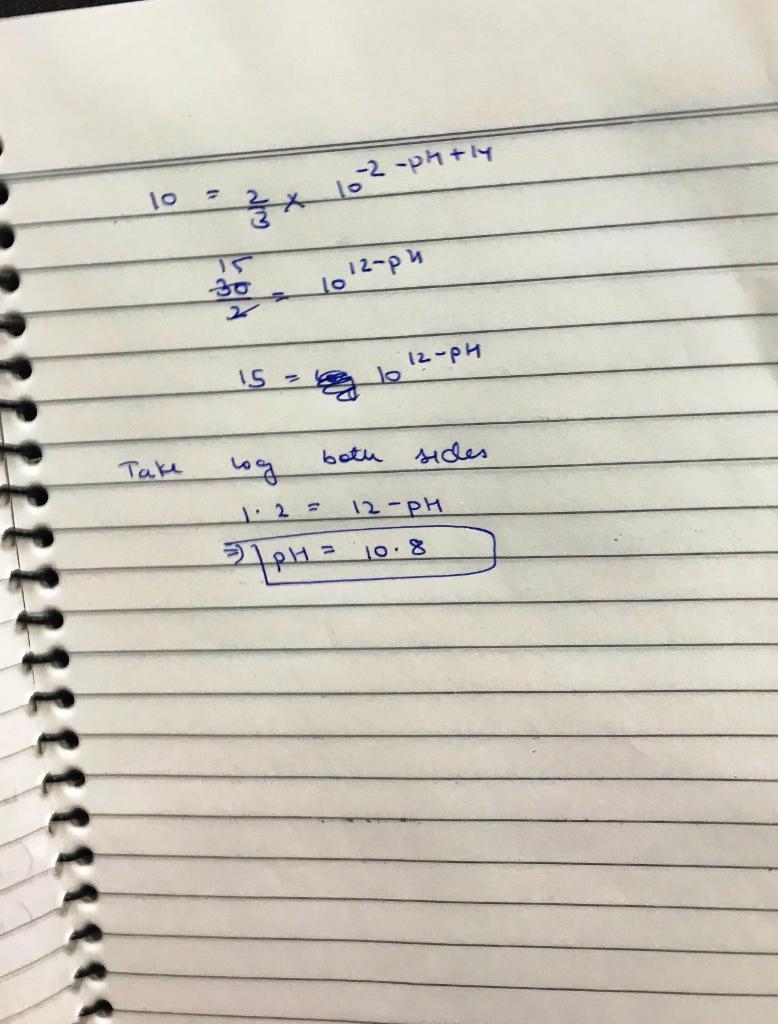 10 = 2/3 × 10^-2-pH+14
15
30/2 = 10^12-pH
15 = 10^12-pH
Take log both sides
1.2 = 12-pH
⇒ pH = 10.8